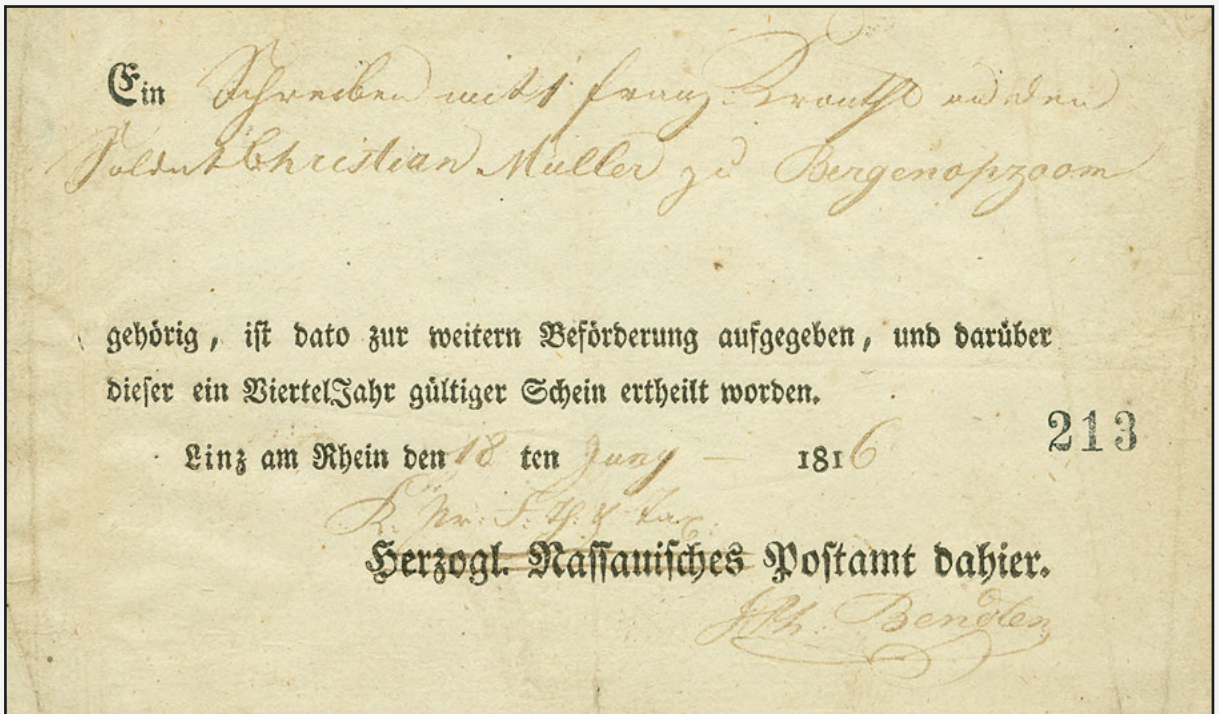 Ein Schreiben mit 1 franz. Kronthl an den
Soldat Christian Muller zu Bergenopzoom
gehörig, iſt dato zur weitern Beförderung aufgegeben, und darüber
dieſer ein ViertelJahr gültiger Schein ertheilt worden.
Linz am Rhein den 18 ten Juny 1816
213
K. Pr. F. Th. & Tax.
Herzogl. Naſſauiſches Poſtamt dahier.
Bendlen